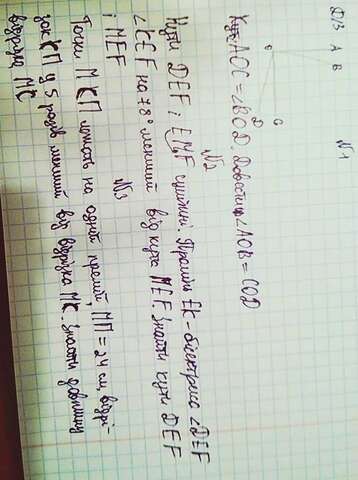 Д/З
N1
A
B
O
D
C
Кут AOC = ∠BOD. Довести ∠AOB = COD
N2
Кути DEF і EMF суміжні. Пряма EK - бісектриса ∠DEF
∠CEF на 78° менший від кута MEF. Знайти кути DEF
і MEF
N3
Точки М К П лежать на одній прямій МП = 24 см, відрі-
зок КП у 5 разів менший від відрізка МК. Знайти довжину
відрізка МК